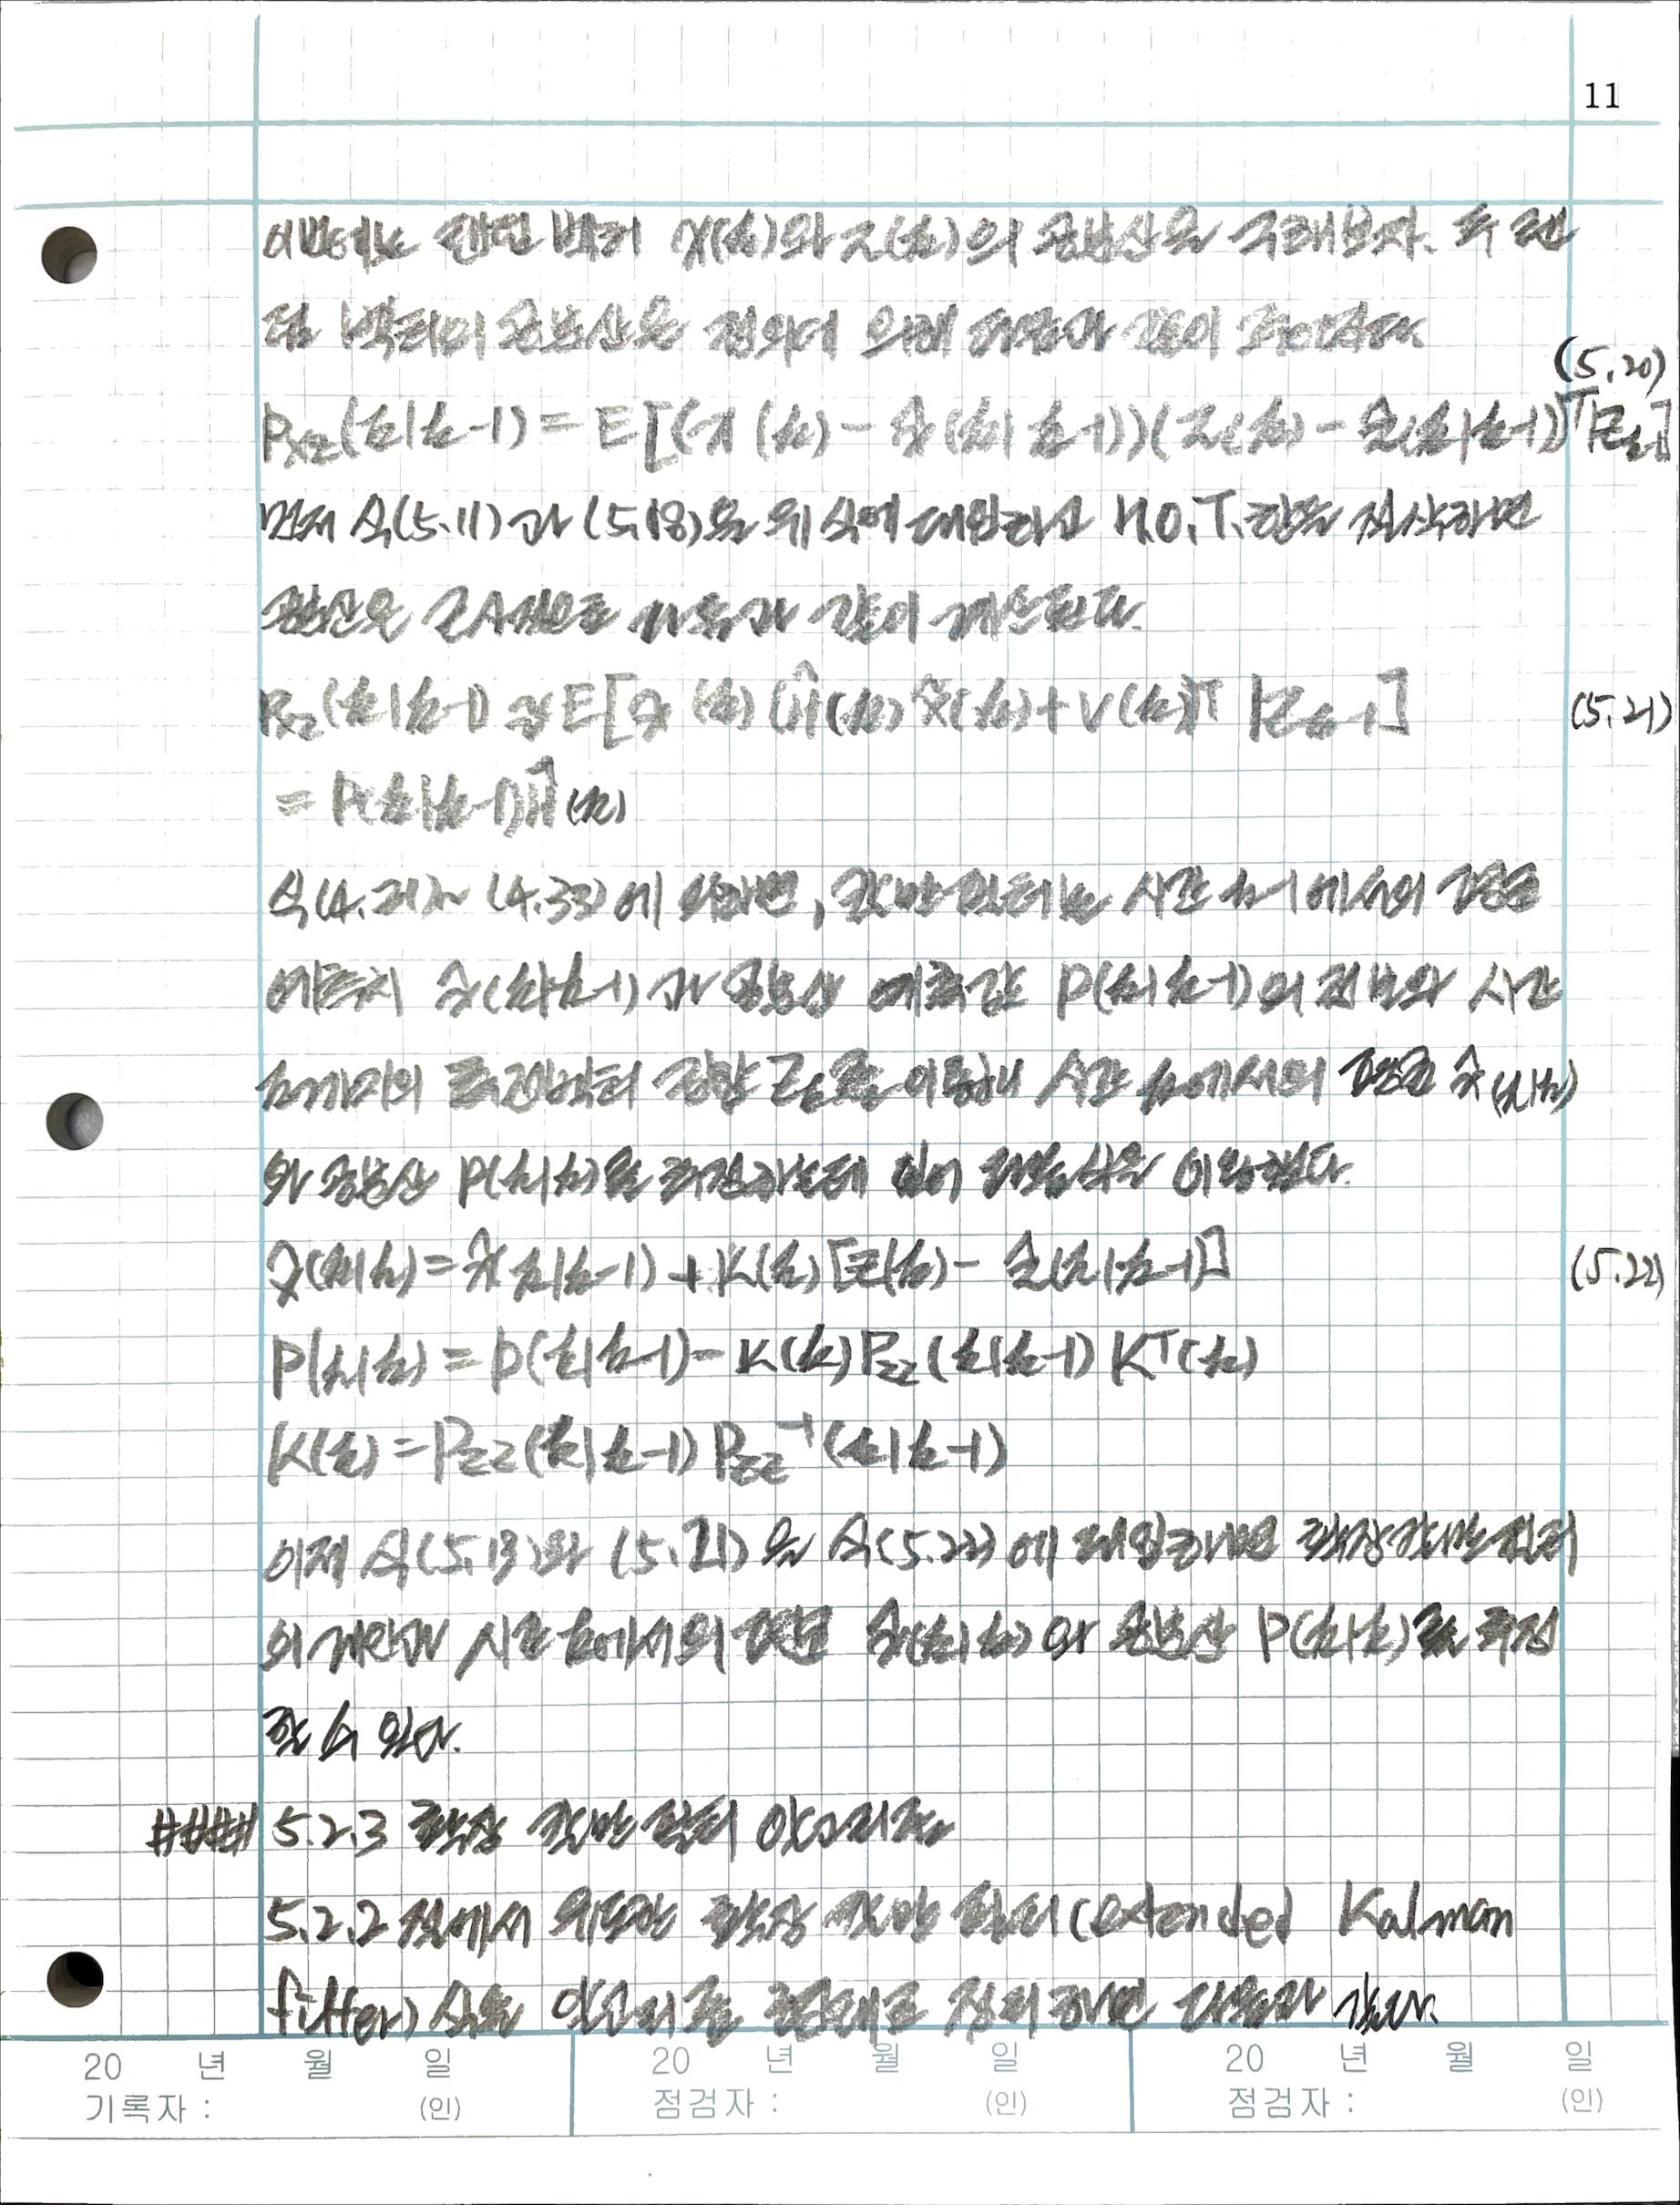 11
이번에는 랜덤 벡터 x(k)와 z(k)의 공분산을 구해보자. 두 랜
덤 벡터의 공분산은 정의에 의해 다음과 같이 주어진다.
(5.20)
Pxz(k|k-1) = E[(x(k) - x̂(k|k-1))(z(k) - ẑ(k|k-1))ᵀ|Zk]
먼저 식(5.11)과 (5.18)을 위 식에 대입하고 H.O.T.항을 하면
공분산은 근사적으로 다음과 같이 계산된다.
Pxz(k|k-1) ≈ E[x̃(k)(Ĥ(k)x̃(k)+v(k))ᵀ|Zk-1] (5.21)
= P(k|k-1)Ĥ(k)
식(4.21)~(4.33)에 의하면, 칼만 필터는 시간 k-1에서의 평균
예측치 x̂(k|k-1)과 공분산 예측값 P(k|k-1)의 정보와 시간
k까지의 측정벡터 집합 Zk를 이용해 시간 k에서의 평균 x̂(k|k)
와 공분산 P(k|k)를 추정하는데 있어 다음 식을 이용한다.
x̂(k|k) = x̂(k|k-1) + K(k)[z(k) - ẑ(k|k-1)] (5.22)
P(k|k) = P(k|k-1) - K(k)Pzz(k|k-1)Kᵀ(k)
K(k) = Pzz(k|k-1)Pzz⁻¹(k|k-1)
이제 식(5.13)와 (5.21)을 식(5.22)에 대입하면 확장칼만필터
의 게인과 시간 k에서의 평균 x̂(k|k)와 공분산 P(k|k)를 추정
할 수 있다.
#### 5.2.3 확장 칼만 필터 알고리즘
5.2.2 절에서 유도한 확장 칼만 필터(extended Kalman
filter) 식을 알고리즘 형태로 정리하면 다음과 같다.
20 년 월 일 20 년 월 일 20 년 월 일
기록자 : (인) 점검자 : (인) 점검자 : (인)